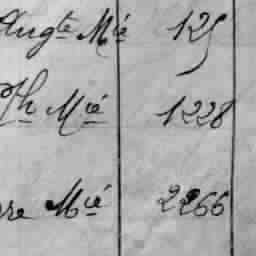 Augte Mié 125
Th Mié 1228
re Mié 2266